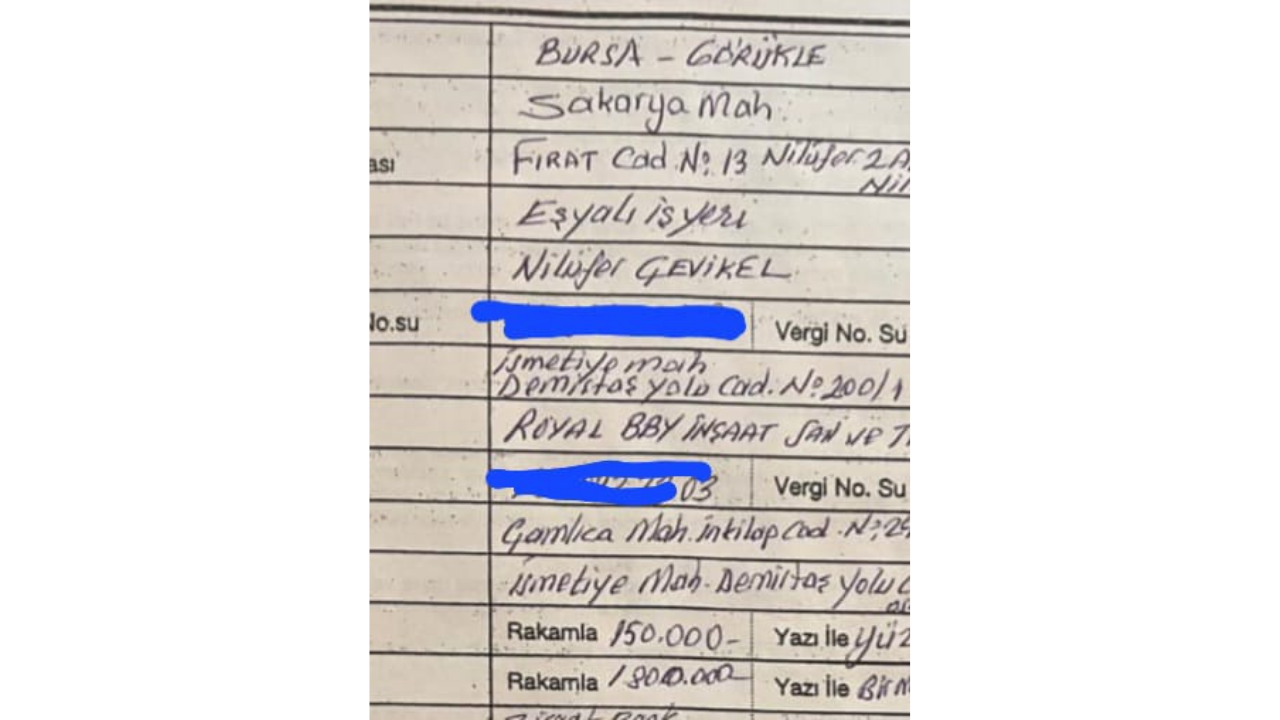 BURSA - GÖRÜKLE
Sakarya Mah.
ası FIRAT Cad. No: 13 Nilüfer 2 A
Nil
Eşyalı işyeri
Nilüfer ÇEVİKEL
No.su Vergi No. Su
ismetiye mah
Demirtaş yolu Cad. No: 200/1
ROYAL BBY İNŞAAT SAN VE T
03 Vergi No. Su
Çamlıca Mah. inkilap Cad. No: 29
ismetiye Mah. Demirtaş yolu C
Rakamla 150.000- Yazı İle yüz
Rakamla 1800.000- Yazı İle Bir M